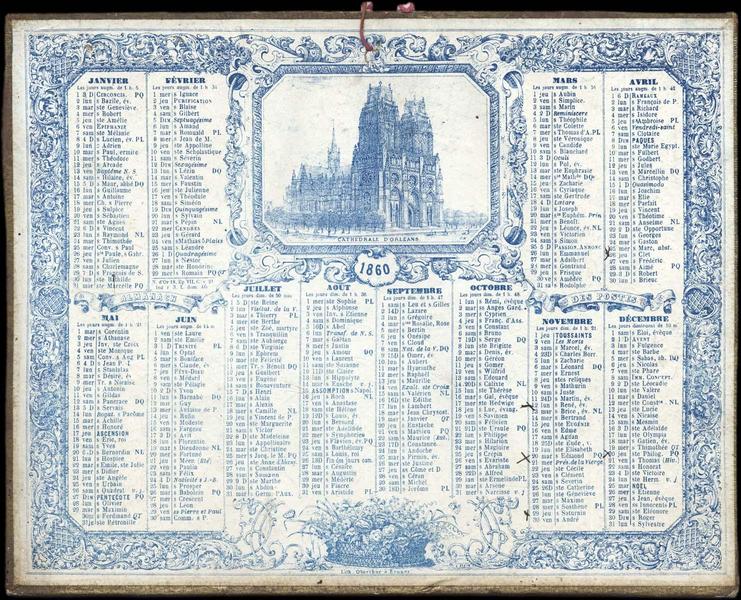 JANVIER
Les jours augm. de 1 h. 5
2 lun s Bazile, év.
3 mar ste Geneviève
4 mer s Robert
5 jeu ste Amélie
6 ven EPIPHANIE
7 sam ste Mélanie
8 D s Lucien, év. PL
10 mar s Paul, ermite
11 mer s Théodore
12 jeu s Arcade
13 ven Baptême N. S.
14 sam s Hilaire, év.
15 D s Maur, abbé DQ
16 lun s Guillaume
17 mar s Antoine
18 mer Ch. s Pierre
19 jeu s Sulpice
20 ven s Sébastien
21 sam ste Agnès
22 D s Vincent
23 lun s Raymond NL
24 mar s Thimothée
25 mer Conv. s Paul
26 jeu ste Paule, s Gabr.
27 ven s Julien
28 sam s Charlemagne
29 D s François de S.
31 mar ste Marcelle
FÉVRIER
1 mer s Ignace
2 jeu PURIFICATION
3 ven s Blaise
4 sam s Gilbert
5 D Septuagésime
6 lun s Amand
7 mar s Romuald PL
8 mer s Jean de M.
9 jeu ste Appoline
10 ven ste Scholastique
11 sam s Séverin
12 D Sexagésime
13 lun s Lézin DQ
14 mar s Valentin
15 mer s Faustin
16 jeu ste Julienne
17 ven s Théodule
18 sam s Siméon
19 D Quinquagésime
20 lun s Sylvain
21 mar s Pépin NL
22 mer CENDRES
23 jeu s Gérard
25 sam s Léandre
26 D Quadragésime
27 lun s Nestor
28 mar ste Honorine
29 mer s Romain PQ
CATHÉDRALE D'ORLÉANS
1860
MARS
1 jeu s Aubin
2 ven s Simplice
3 sam s Marin
4 D Reminiscere
5 lun s Théophile
6 mar ste Colette
7 mer s Thomas d'A. PL
8 jeu ste Véronique
9 ven s Candide
10 sam s Blanchard
11 D Oculi
12 lun s Pol, év.
13 mar ste Euphrasie
15 jeu s Zacharie
16 ven s Cyriaque
17 sam ste Gertrude
18 D Lætare
19 lun s Joseph
21 mer s Benoît
22 jeu s Léonce, év. NL
23 ven s Victorien
24 sam s Simon
25 D PASSION. ANNONC
26 lun s Emmanuel
27 mar s Adelbert
28 mer s Gontrand
29 jeu s Frisque
30 ven s Amédée PQ
31 sa s Rodolphe
AVRIL
1 D RAMEAUX
2 lun s François de P.
3 mar s Richard
4 mer s Isidore
5 jeu s Ambroise PL
6 ven Vendredi-saint
7 sam s Clotaire
8 D PAQUES
9 lun ste Marie Egypt.
10 mar s Fulbert
11 mer s Godbert
12 jeu s Jules
13 ven s Marcellin DQ
14 sam s Christophe
15 D Quasimodo
16 lun s Joachim
17 mar s Elie
18 mer s Parfait
19 jeu s Vincent
20 ven s Théotime
21 sam s Anselme NL
22 D ste Opportune
23 lun s Georges
24 mar s Gaston
25 mer s Marc, abst.
26 jeu s Clet
27 ven s Frédéric
28 sam s Aimé PQ
29 D s Robert
30 lun s Brieuc
ALMANACH
DES POSTES
MAI
1 mar s Jacques
2 mer s Athanase
3 jeu Inv. ste Croix
4 ven ste Monique
5 sam Conv. s Aug PL
6 D s Jean P. L
7 lun s Stanislas
8 mar s Désiré, év.
9 mer Tr. s Nicaise
10 jeu s Antonin
11 ven s Gildas
12 sam s Pancrace DQ
13 D s Servais
14 lun Rogat. s Pacôme
15 mar s Achille
16 mer s Honoré
17 jeu ASCENSION
18 ven s Eric, roi
19 sam s Yves
20 D s Bernardin NL
21 lun s Hospice
22 mar s Emile, ste Julie
23 mer s Didier
24 jeu ste Angèle
25 ven s Urbain
26 sam s Quadrat
27 D PENTECOTE PQ
28 lun s Olivier
29 mar s Maximin
30 mer s Ferdinand QT
31 jeu ste Pétronille
JUIN
1 ven ste Laure
2 sam ste Emilie
3 D TRINITÉ PL
4 lun s Optat
5 mar s Boniface
6 mer s Claude
7 jeu FÊTE-DIEU
8 ven s Médard
9 sam ste Pélagie
11 lun s Barnabé DQ
12 mar s Guy
13 mer s Antoine de P.
14 jeu s Rufin
15 ven s Modeste
16 sam s Fargeau
17 D s Avit
18 lun s Florentin
20 mer s Fortuné
22 ven s Paulin
23 sam s Félix
24 D Nativité s J.-B.
25 lun s Prosper
26 mar s Babolein PQ
27 mer s Crescent
28 jeu s Léon
29 ven ss Pierre et Paul
30 sam Comm. s P.
JUILLET
1 D ste Reine
2 lun Visitat. de la V.
3 mar s Thierry PL
4 mer ste Berthe
5 jeu ste Zoé, martyre
6 ven s Tranquille
7 sam ste Aubierge
8 D ste Virginie
9 lun s Ephrem
10 mar ste Félicité
11 mer Tr. s Benoît DQ
12 jeu s Gualbert
13 ven s Eugène
14 sam s Bonaventure
15 D s Henri
16 lun s Alain
17 mar s Alexis
18 mer s Camille NL
19 jeu s Vincent de P.
20 ven ste Marguerite
21 sam s Victor
22 D ste Madeleine
23 lun s Appollinaire
24 mar ste Christine
25 mer s Jacq. le M. PQ
26 jeu ste Anne
27 ven s Constantin
28 sam s Samson
29 D ste Marthe
30 lun s Abdon
31 mar s Germ. l'Aux.
AOUT
1 mer ste Sophie PL
2 jeu s Alphonse
3 ven Inv. s Etienne
4 sam s Dominique
5 D s Abel
6 lun Transf. de N. S.
7 mar s Gaétan
8 mer s Justin
9 jeu s Amour DQ
10 ven s Laurent
11 sam ste Suzanne
12 D ste Claire
13 lun s Hippolyte
14 mar s Eusèbe
15 mer ASSOMPTION s Napol.
16 jeu s Roch NL
17 ven s Anastase
18 sam ste Hélène
19 D s Louis, év
20 lun s Bernard
21 mar ste Adeline
22 mer s Symphorien
23 jeu s Flavien, év. PQ
24 ven s Barthélemy
25 sam s Louis, roi
27 lun s Césaire
28 mar s Augustin
29 mer s Médéric
30 jeu s Fiacre
31 ven s Aristide PL
SEPTEMBRE
1 sam s Leu et s Gilles
2 D s Lazare
3 lun s Grégoire
4 mar ste Rosalie, Rose
5 mer s Bertin
6 jeu s Onésipe
7 ven s Cloud
8 sam Nat. de la V. DQ
9 D s Omer, év.
10 lun s Aubert
11 mar s Hyacinthe
12 mer s Raphaël
13 jeu s Maurille
14 ven Exalt. ste Croix
15 sam s Valérien NL
16 D ste Edithe
17 lun s Lambert
18 mar s Jean Chrysost.
19 mer s Janvier QT
20 jeu s Eustache
21 ven s Mathieu PQ
22 sam s Maurice
23 D s Constantin
24 lun s Andoche
25 mar s Firmin, év.
26 mer ste Justine
27 jeu ss Côme et D
28 ven s Céran
29 sam s Michel
30 D s Jérôme PL
OCTOBRE
1 lun s Rémi, évêque
2 mar ss Anges Gard.
3 mer s Cyprien
4 jeu s Franç. d'Ass.
5 ven s Constant
6 sam s Bruno
7 D s Serge DQ
8 lun ste Brigitte
9 mar s Denis, év.
10 mer s Géréon
11 jeu s Gomer
12 ven s Wilfrid
13 sam s Edouard
14 D s Calixte NL
15 lun ste Thérèse
16 mar s Gal, évêque
17 mer ste Hedwige
18 jeu s Luc, évang.
19 ven s Savinien
20 sam s Félicien
21 D ste Ursule PQ
22 lun s Philippe
23 mar s Hilarion
24 mer s Magloire
25 jeu s Crépin
26 ven s Evariste
27 sam s Abraham
28 D s Alfred
29 lun ste Ermelinde PL
30 mar s Arsène
31 mer s Narcisse v. J
NOVEMBRE
1 jeu TOUSSAINTS
2 ven Les Morts
3 sam s Marcel, év.
4 D s Charles Borr.
5 lun s Zacharie
6 mar s Léonard DQ
7 mer s Ernest
8 jeu stes reliques
9 ven s Mathurin
10 sam s Juste
11 D s Martin, év.
12 lun s René, év.
13 mar s Brice, év. NL
14 mer s Bertrand
15 jeu ste Eugénie
16 ven s Edme
17 sam s Agnan
18 D ste Eude, v.
19 lun ste Elisabeth
20 mar s Edmond PQ
21 mer Prés de la Vierge
22 jeu ste Cécile
23 ven s Clément
24 sam s Séverin
25 D ste Catherine
26 lun ste Geneviève
27 mar s Maxime
28 mer s Sosthène PL
29 jeu s Saturnin
30 ven s André
DÉCEMBRE
1 sam s Eloi, évêque
2 D AVENT
3 lun s Fulgence
4 mar ste Barbe
5 mer s Sabas, ab. DQ
6 jeu s Nicolas
7 ven ste Phare
8 sam IMM. CONCEPT.
9 D ste Léocadie
10 lun ste Valère
11 mar s Daniel
12 mer ste Constance NL
13 jeu ste Lucie
14 ven s Nicaise
15 sam s Mesmin
16 D ste Adélaïde
17 lun ste Olympia
18 mar s Gatien, év.
19 mer s Thimothée QT
20 jeu ste Philog. PQ
21 ven s Thomas
22 sam s Honorat
23 D ste Victoire
24 lun ste Herm. v. J
25 mar NOEL
26 mer s Etienne
27 jeu s Jean, évang.
28 ven ss Innocents PL
29 sam ste Eléonore
30 D s Roger
31 lun s Sylvestre
Lith. Oberthur à Rennes